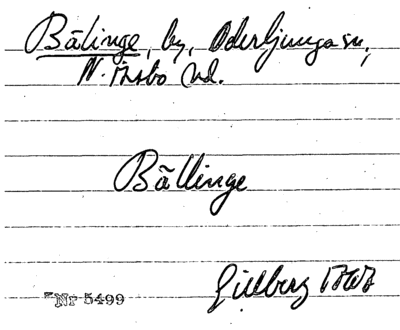 Bälinge, by, Oderljunga sn,
N. Åsbo hd.
Bällinge
Gillberg
Nr 5499